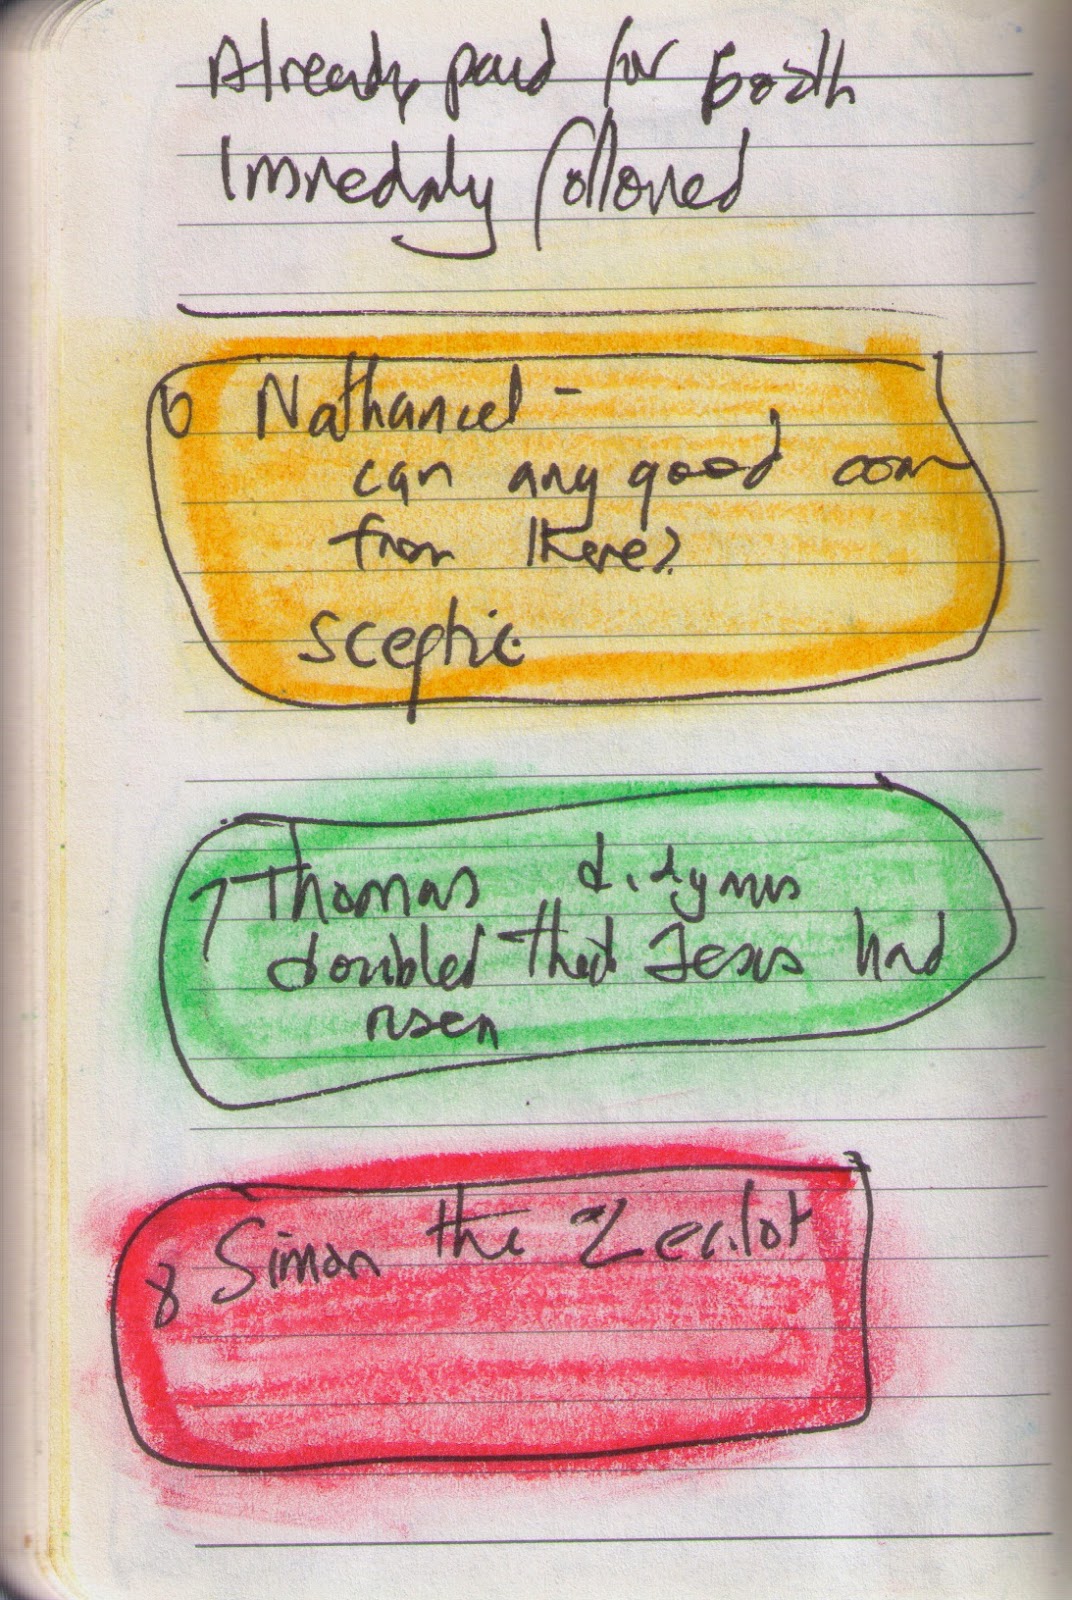 Already paid for booth
Immedialy followed
6 Nathaneel -
can any good com
from there?
Sceptic
7 Thomas didymus
doubled that Jesus had
risen
8 Simon the Zealot